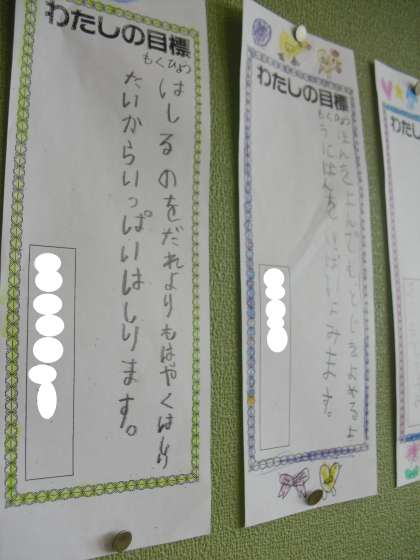 わたしの目標
もくひょう
はしるのをだれよりもはやくはしり
たいからいっぱいはしります。
わたしの目標
もくひょう
ほんをよんでも、とじをよめるよ
うにほんをいっぱいよみます。
わたし